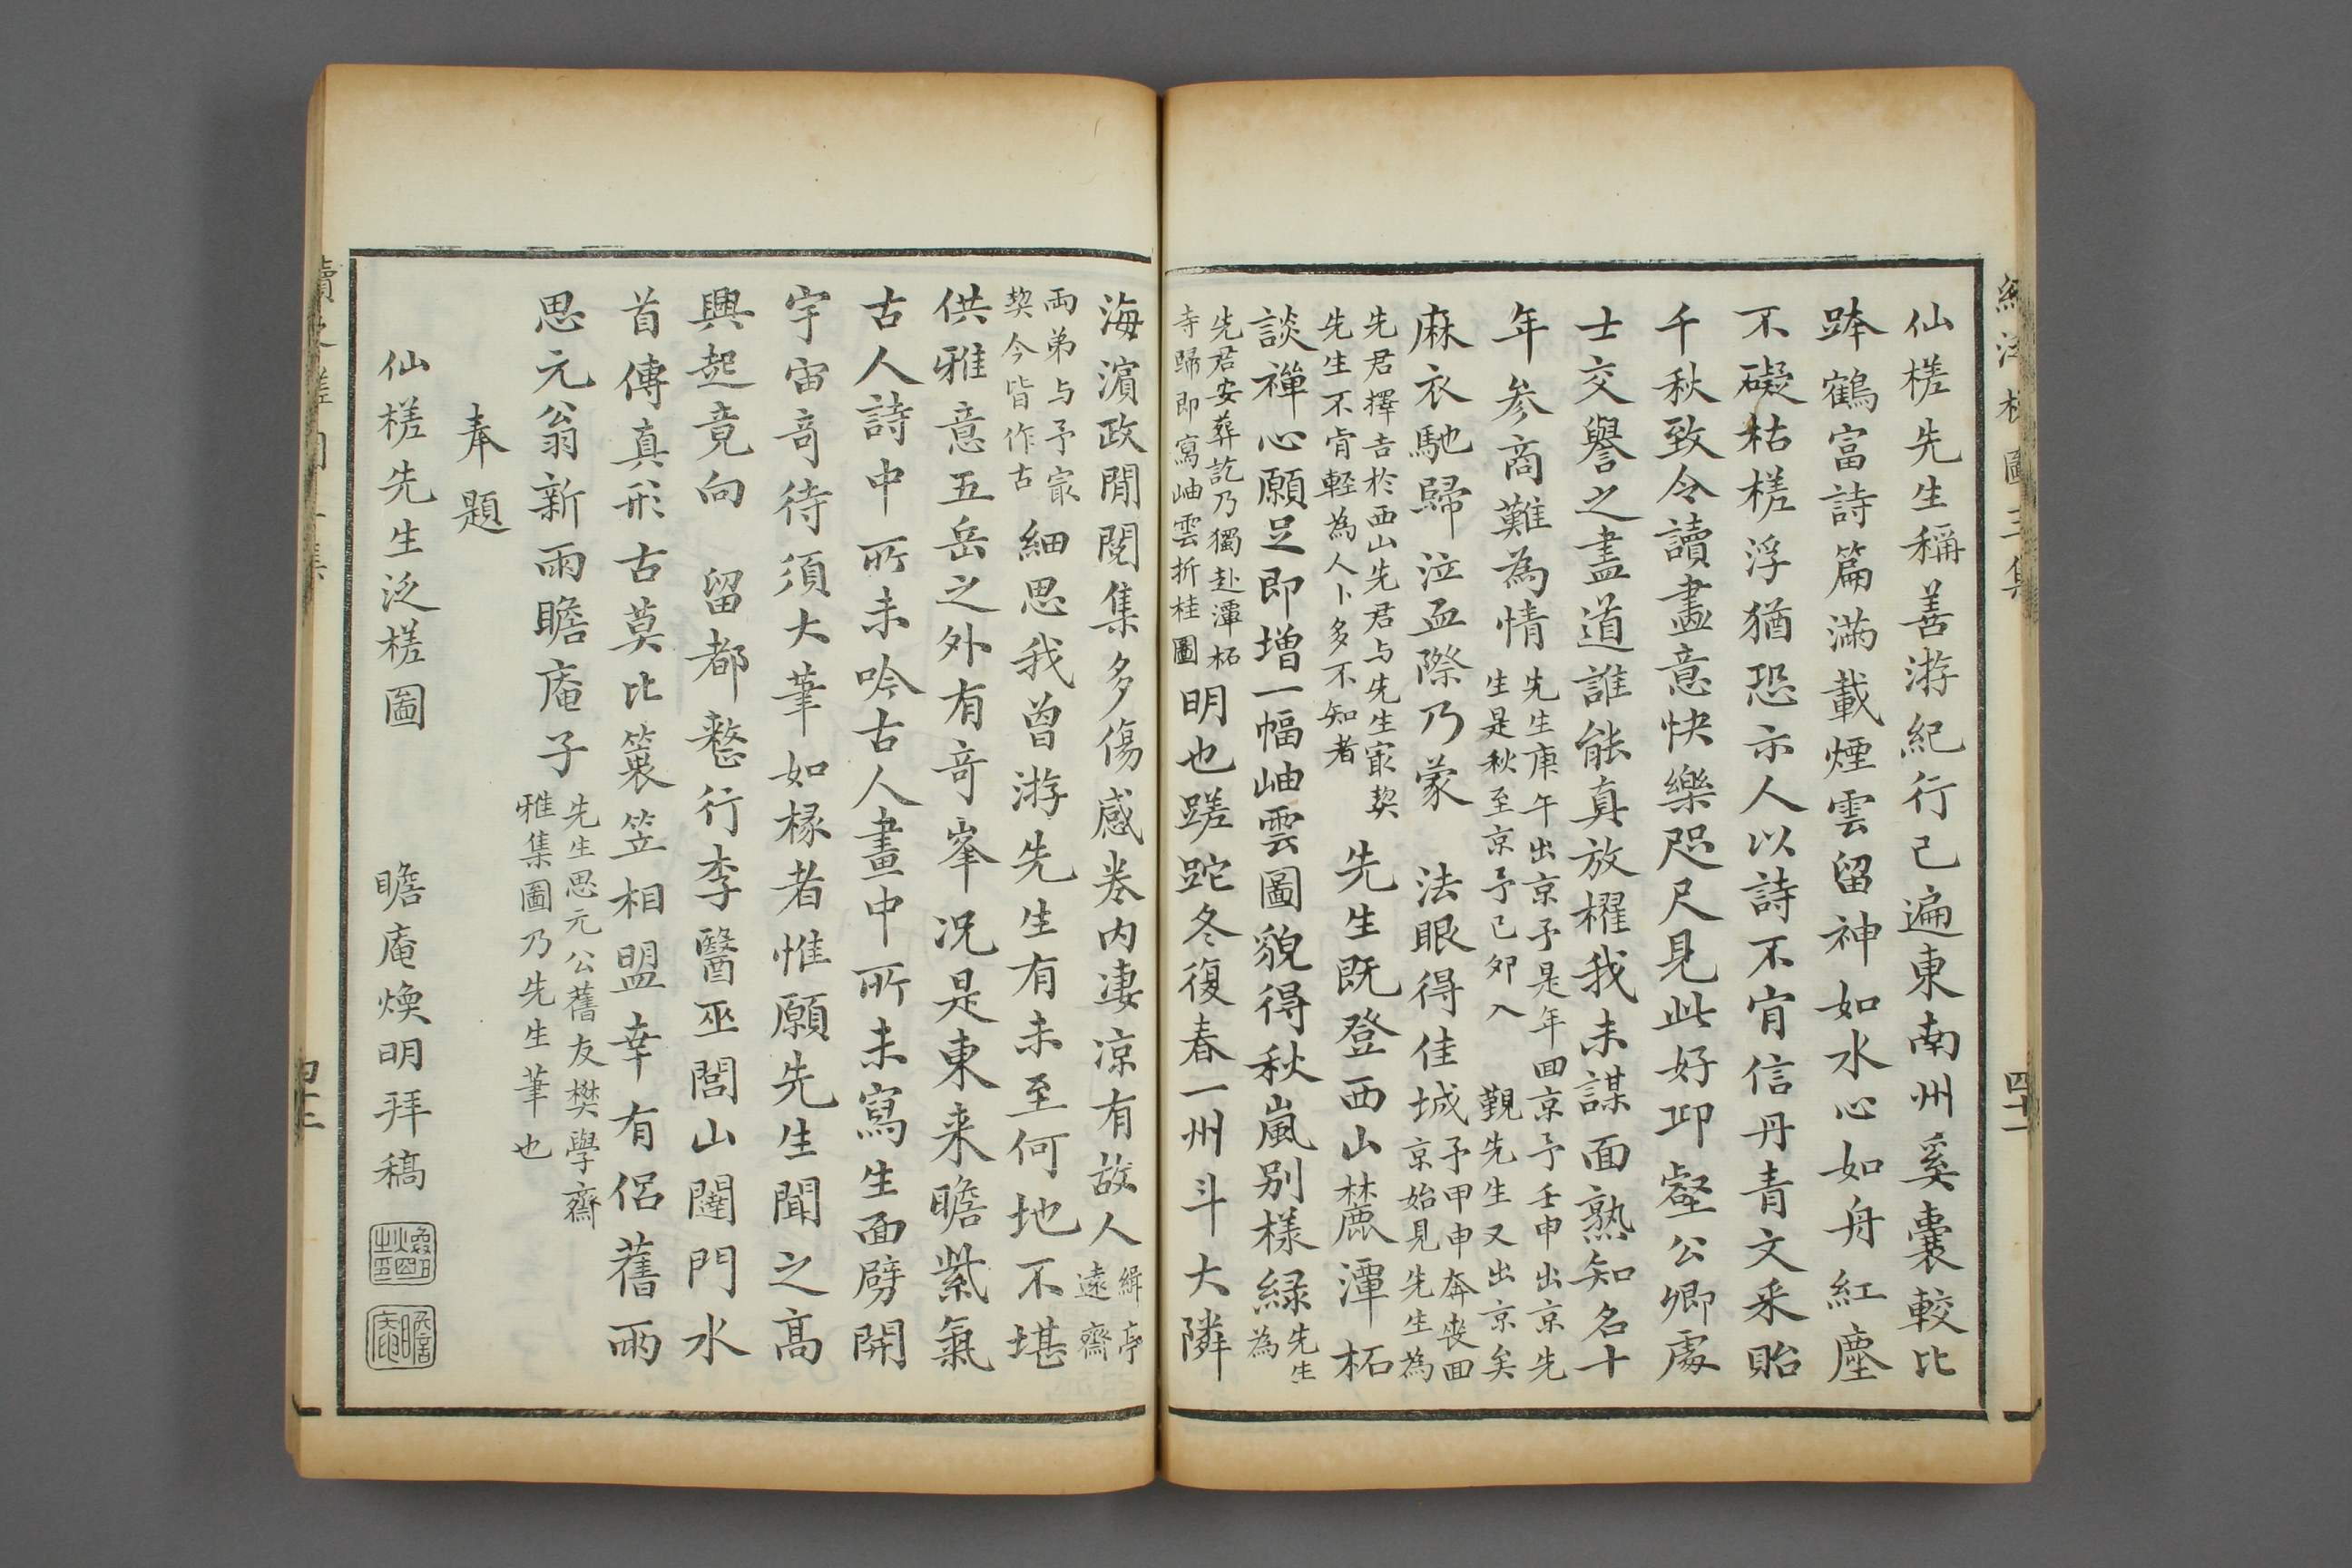 仙槎先生稱善游紀行已遍東南州奚囊較比
跨鶴富詩篇滿載煙雲留神如水心如舟紅塵
不礙枯槎浮猶恐示人以詩不肯信丹青文采貽
千秋致令讀畫意快樂咫尺見此好邱壑公卿處
士交譽之盡道誰能真放櫂我未謀面熟知名十
年參商難為情
先生庚午出京予是年回京予壬申出京先
生是秋至京予己卯入 覲先生又出京矣
麻衣馳歸泣血際乃蒙 法眼得佳城
予甲申奔喪回
京始見先生為
先君擇吉於西山先君与先生㝡契
先生不肯輕為人卜多不知者
先生既登西山麓潭柘
談禪心願足即增一幅岫雲圖貌得秋嵐别樣緑
先生
為
先君安葬訖乃獨赴潭柘
寺歸即寫岫雲折桂圖
明也蹉跎冬復春一州斗大隣
海濵政閒閱集多傷感卷内淒涼有故人
緝亭
遠齋
兩弟与予㝡
契今皆作古
細思我曾游先生有未至何地不堪
供雅意五岳之外有奇峯況是東来瞻紫氣
古人詩中所未吟古人畫中所未寫生面劈開
宇宙奇待須大筆如椽者惟願先生聞之高
興起竟向 留都憗行李醫巫閭山闥門水
首傳真形古莫比簑笠相盟幸有侶舊雨
思元翁新雨瞻庵子
先生思元公舊友樊學齋
雅集圖乃先生筆也
奉題
仙槎先生泛槎圖 瞻庵煥明拜稿
四十一